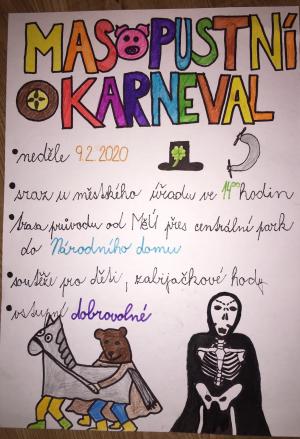 MASOPUSTNÍ
KARNEVAL
neděle 9.2. 2020
sraz u městského úřadu ve 14⁰⁰ hodin
trasa průvodu od MěÚ přes centrální park
do Národního domu
soutěže pro děti, zabijačkové hody
vstupné dobrovolné